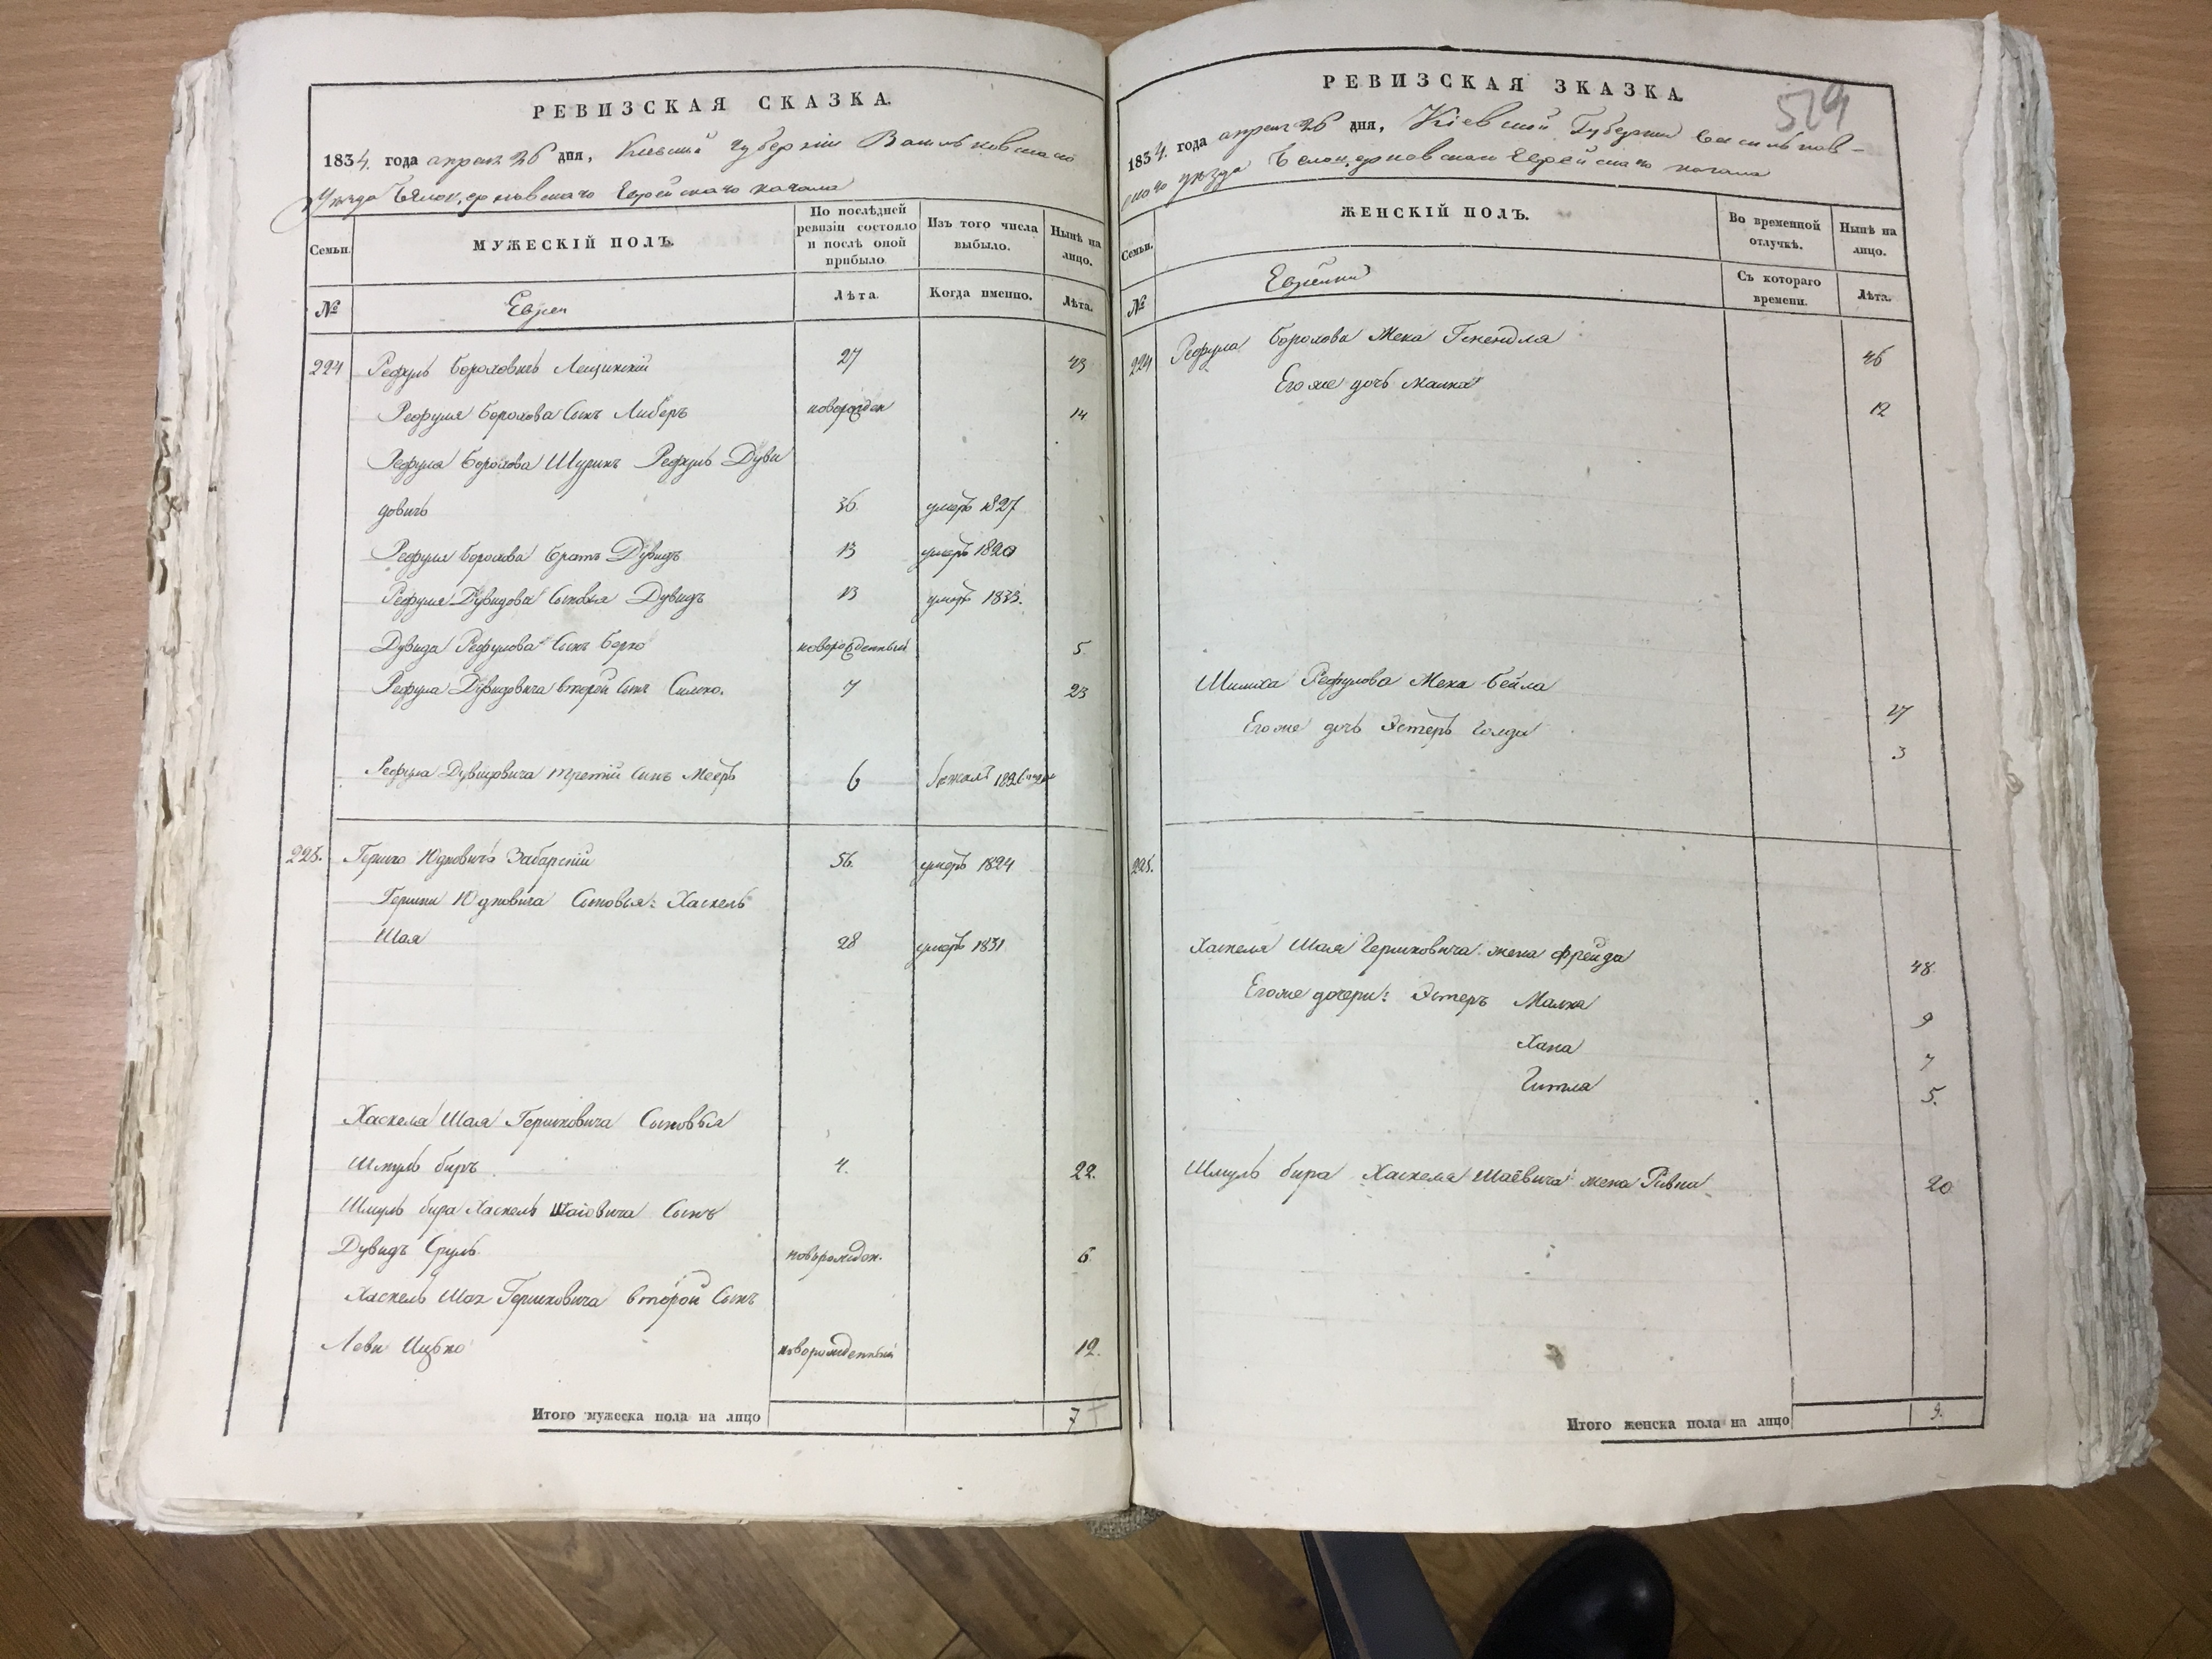 РЕВИЗСКАЯ СКАЗКА.
1834. года апреля 26 дня, Киевской губернии Васильковскаго
Уезда Бѣлоцерковскаго Еврейскаго кагала
Семьи.
МУЖЕСКІЙ ПОЛЪ.
По послѣдней ревизіи состояло и послѣ оной прибыло
Изъ того числа выбыло.
Нынѣ на лицо.
№
Евреи
Лѣта.
Когда именно.
Лѣта.
224 Рефуль Бороховичъ 27 43
Рефуля Борохова Сынъ Либеръ новорожден 14
Рефуля Борохова Шуринъ Рефуль Дуви
довичъ 36. умеръ 1827
Рефуля Борохова братъ Дувидъ 13 умеръ 1820
Рефуля Дувидова Сыновья Дувидъ 13 умеръ 1833.
Дувида Рефулова Сынъ Берко новорожденный 5.
Рефула Дувидовича второй Сынъ 7 23
Рефула Дувидовича третій Сынъ Мееръ 6 бежалъ
225. Гершко Юдковичъ Забарскій 56. умеръ 1824
Гершки Юдковича Сыновья: Хаскель
Шая 28 умеръ 1831
Хаскеля Шая Гершковича Сыновья
Шмуль биръ 4. 22.
Шмуль бира Хаскель Шаіовича Сынъ
Дувидъ Сруль новорожден. 6
Хаскель Шая Гершковича второй Сынъ
Леви Ицко новорожденный 12.
Итого мужеска пола на лицо 7
РЕВИЗСКАЯ ЗКАЗКА.
519
1834. года апреля 26 дня, Кіевской Губерніи Васильков-
скаго уезда Бѣлоцерковскаго Еврейскаго кагала
Семьи.
ЖЕНСКІЙ ПОЛЪ.
Во временной отлучкѣ.
Нынѣ на лицо.
№
Еврейки
Съ котораго времени.
Лѣта.
224 Рефула Борохова Жена Генендля 46
Его же дочь Малка 12
Шимка Рефулова Жена Бейла 27
Его же дочь Эстеръ Голда 3
225.
Хаскеля Шая Гершковича жена Фрейда 48.
Его же дочери: Эстеръ Малка 9
Хана 7
Гитля 5.
Шмуль бира Хаскеля Шаевича жена Ривка 20
Итого женска пола на лицо 9.